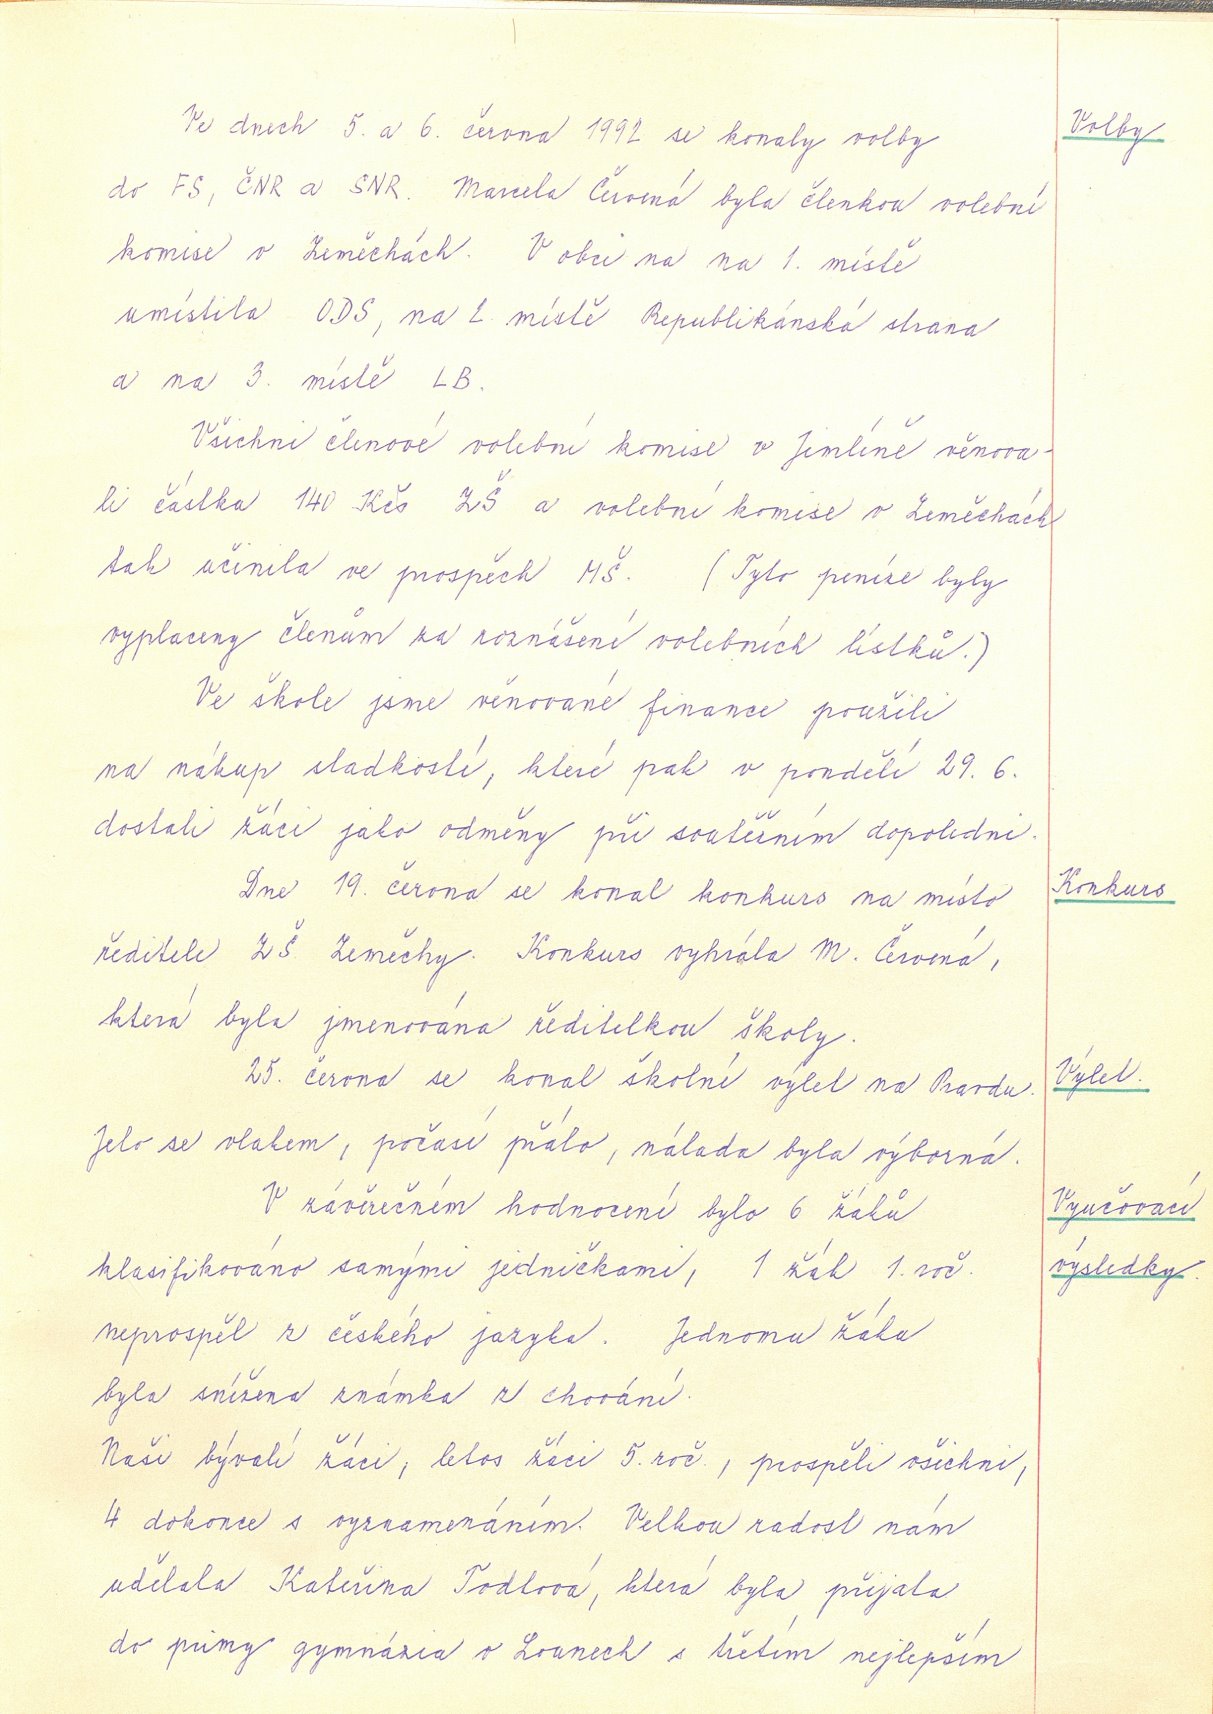 Ve dnech 5. a 6. června 1992 se konaly volby
Volby
do FS, ČNR a SNR. Marcela Červená byla členkou volební
komise v Zeměchách. V obci na na 1. místě
umístila ODS, na 2. místě Republikánská strana
a na 3. místě LB.
Všichni členové volební komise v Jimlíně věnova-
li částku 140 Kčs ZŠ a volební komise v Zeměchách
tak učinila ve prospěch MŠ. (Tyto peníze byly
vyplaceny členům za roznášení volebních lístků.)
Ve škole jsme věnované finance použili
na nákup sladkostí, které pak v pondělí 29. 6.
dostali žáci jako odměny při soutěžním dopoledni.
Dne 19. června se konal konkurs na místo
Konkurs
ředitele ZŠ Zeměchy. Konkurs vyhrála M. Červená,
která byla jmenována ředitelkou školy.
25. června se konal školní výlet na Pravdu.
Výlet.
Jelo se vlakem, počasí přálo, nálada byla výborná.
V závěrečném hodnocení bylo 6 žáků
Vyučovací
klasifikováno samými jedničkami, 1 žák 1. roč.
výsledky.
neprospěl z českého jazyka. Jednomu žáku
byla snížena známka z chování.
Naši bývalí žáci, letos žáci 5. roč., prospěli všichni,
4 dokonce s vyznamenáním. Velkou radost nám
udělala Kateřina Todtová, která byla přijata
do primy gymnázia v Lounech s třetím nejlepším